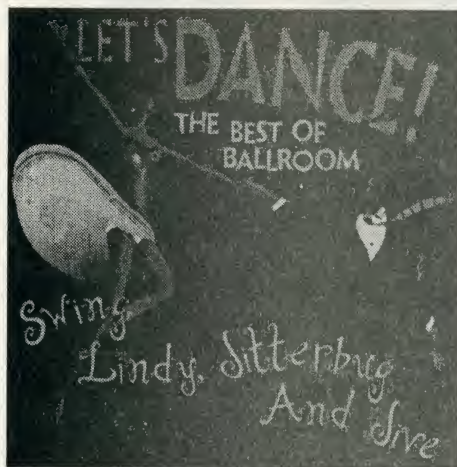 LET'S DANCE!
THE BEST OF
BALLROOM
Swing
Lindy, Jitterbug
And Jive